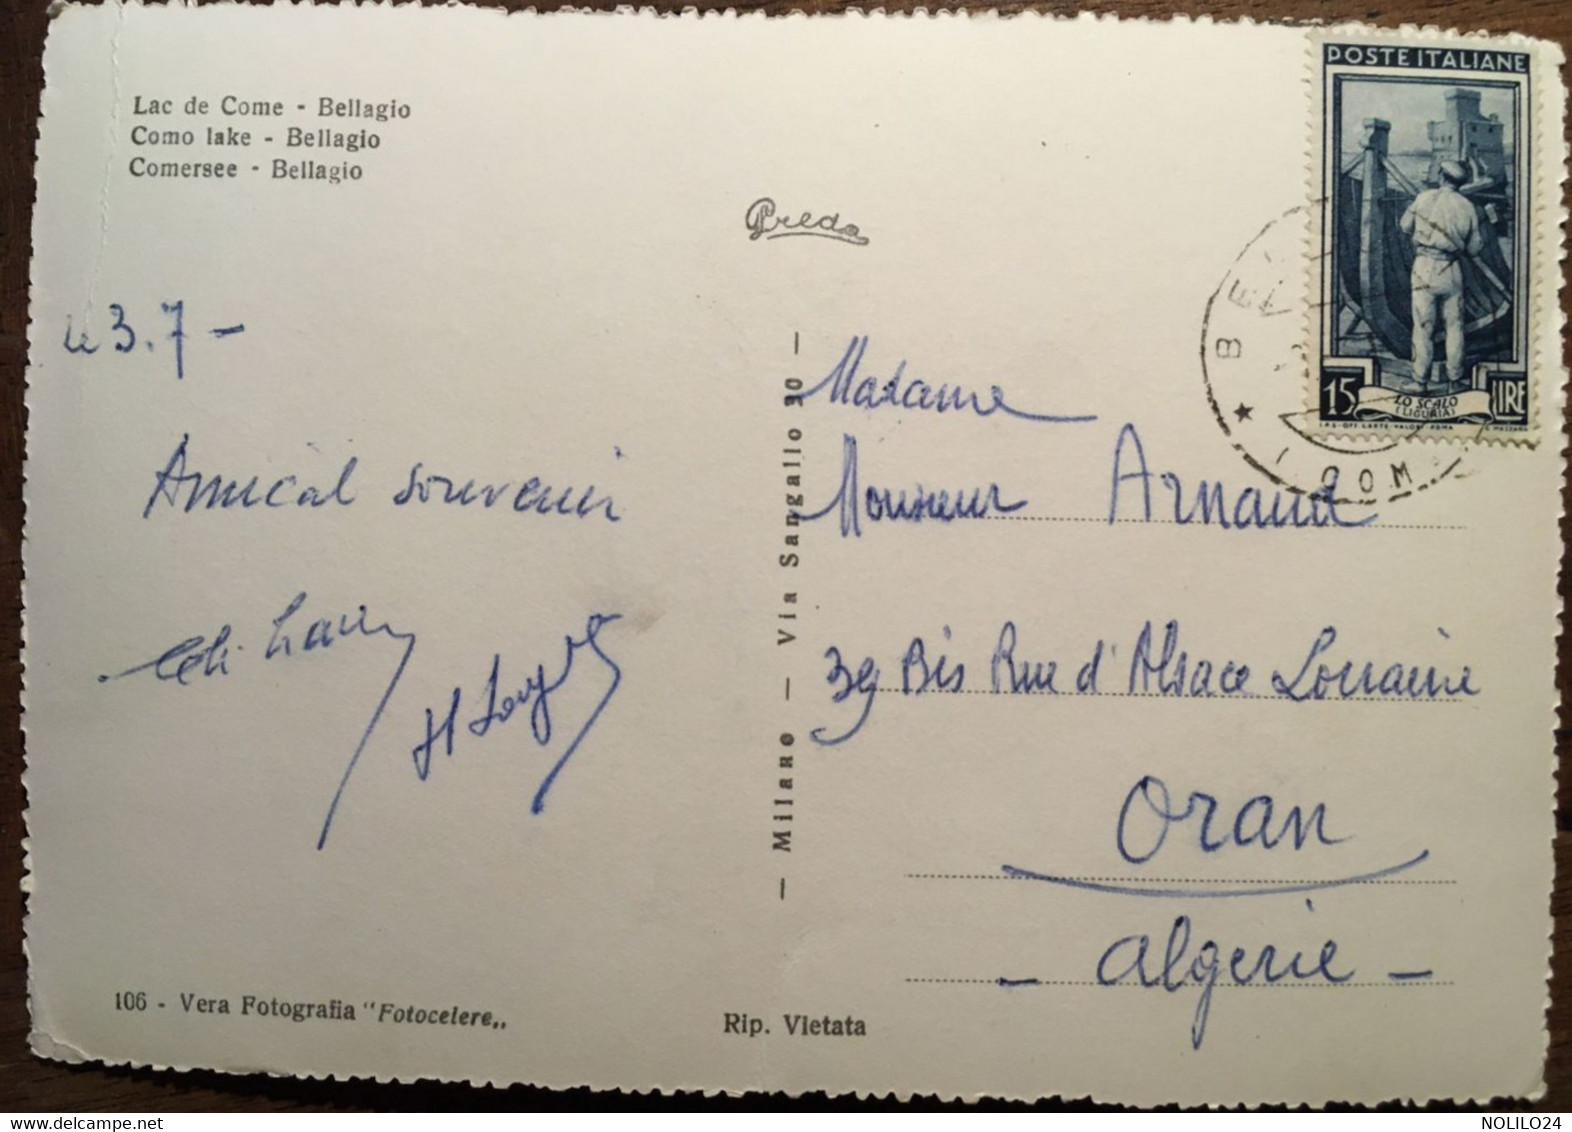 Lac de Come - Bellagio
Como lake - Bellagio
Comersee - Bellagio
Preda
POSTE ITALIANE
15
LO SCALO
(LIGURIA)
LIRE
I.P.S-OFF. CARTE-VALORI-ROMA
BEL
COM
le 3.7 -
Amical souvenir
Madame
Monsieur Arnaud
39 Bis Rue d'Alsace Lorraine
Oran
- Algérie -
- Milano - Via Sangallo 30 -
106 - Vera Fotografia "Fotocelere„
Rip. Vietata
NOLILO24